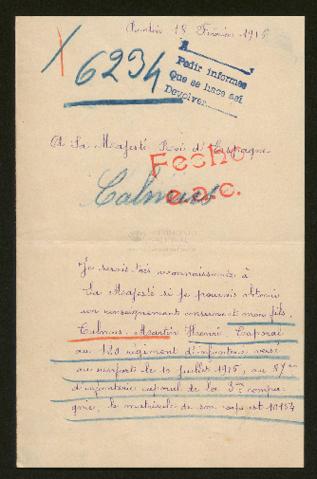 18 Février 1916
6234
A
Pedir informes
Que se hace así
Devolver
A Sa Majesté Roi d'Espagne
Fecho
e.a.c.
Calmus
Je serais très reconnaissante à
Sa Majesté si je pouvais obtenir
un renseignement concernant mon fils,
Calmus Martin Henri Caporal
au 120 régiment d'infanterie versé
au renforts le 10 juillet 1915, au 87me
d'infanterie caporal de la 3me compa-
gnie, le matricule de son corps est 10154